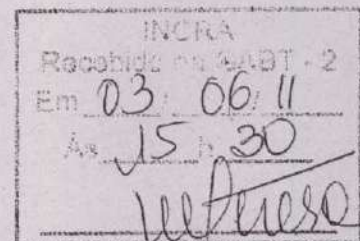 INCRA
Recebido no GABT - 2
Em 03 / 06 / 11
Às 15 h 30